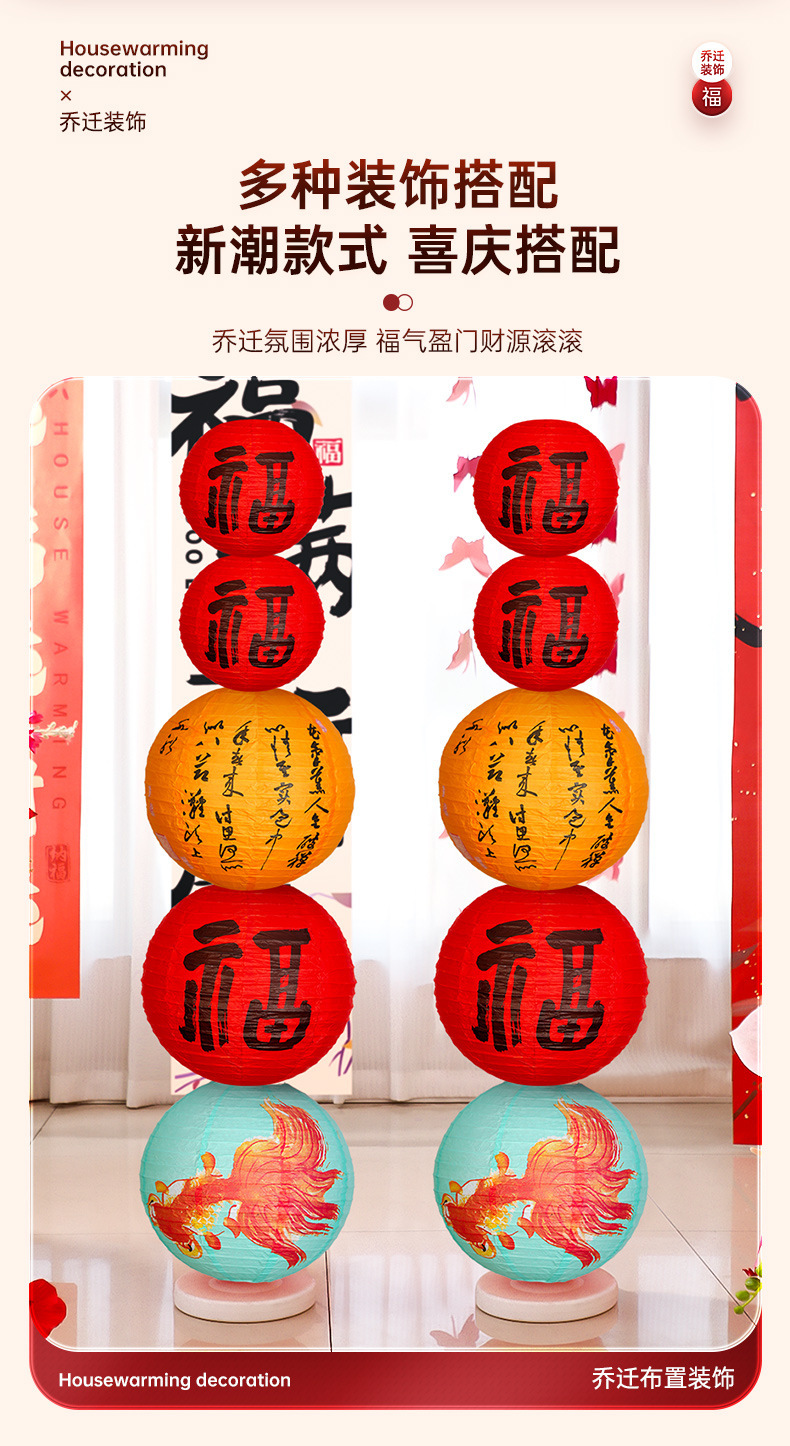 Housewarming
decoration
×
乔迁装饰
乔迁
装饰
福
多种装饰搭配
新潮款式 喜庆搭配
乔迁氛围浓厚 福气盈门财源滚滚
HOUSE WARMING
纳福
福
福
满
福
福
福
福
福
福
Housewarming decoration
乔迁布置装饰